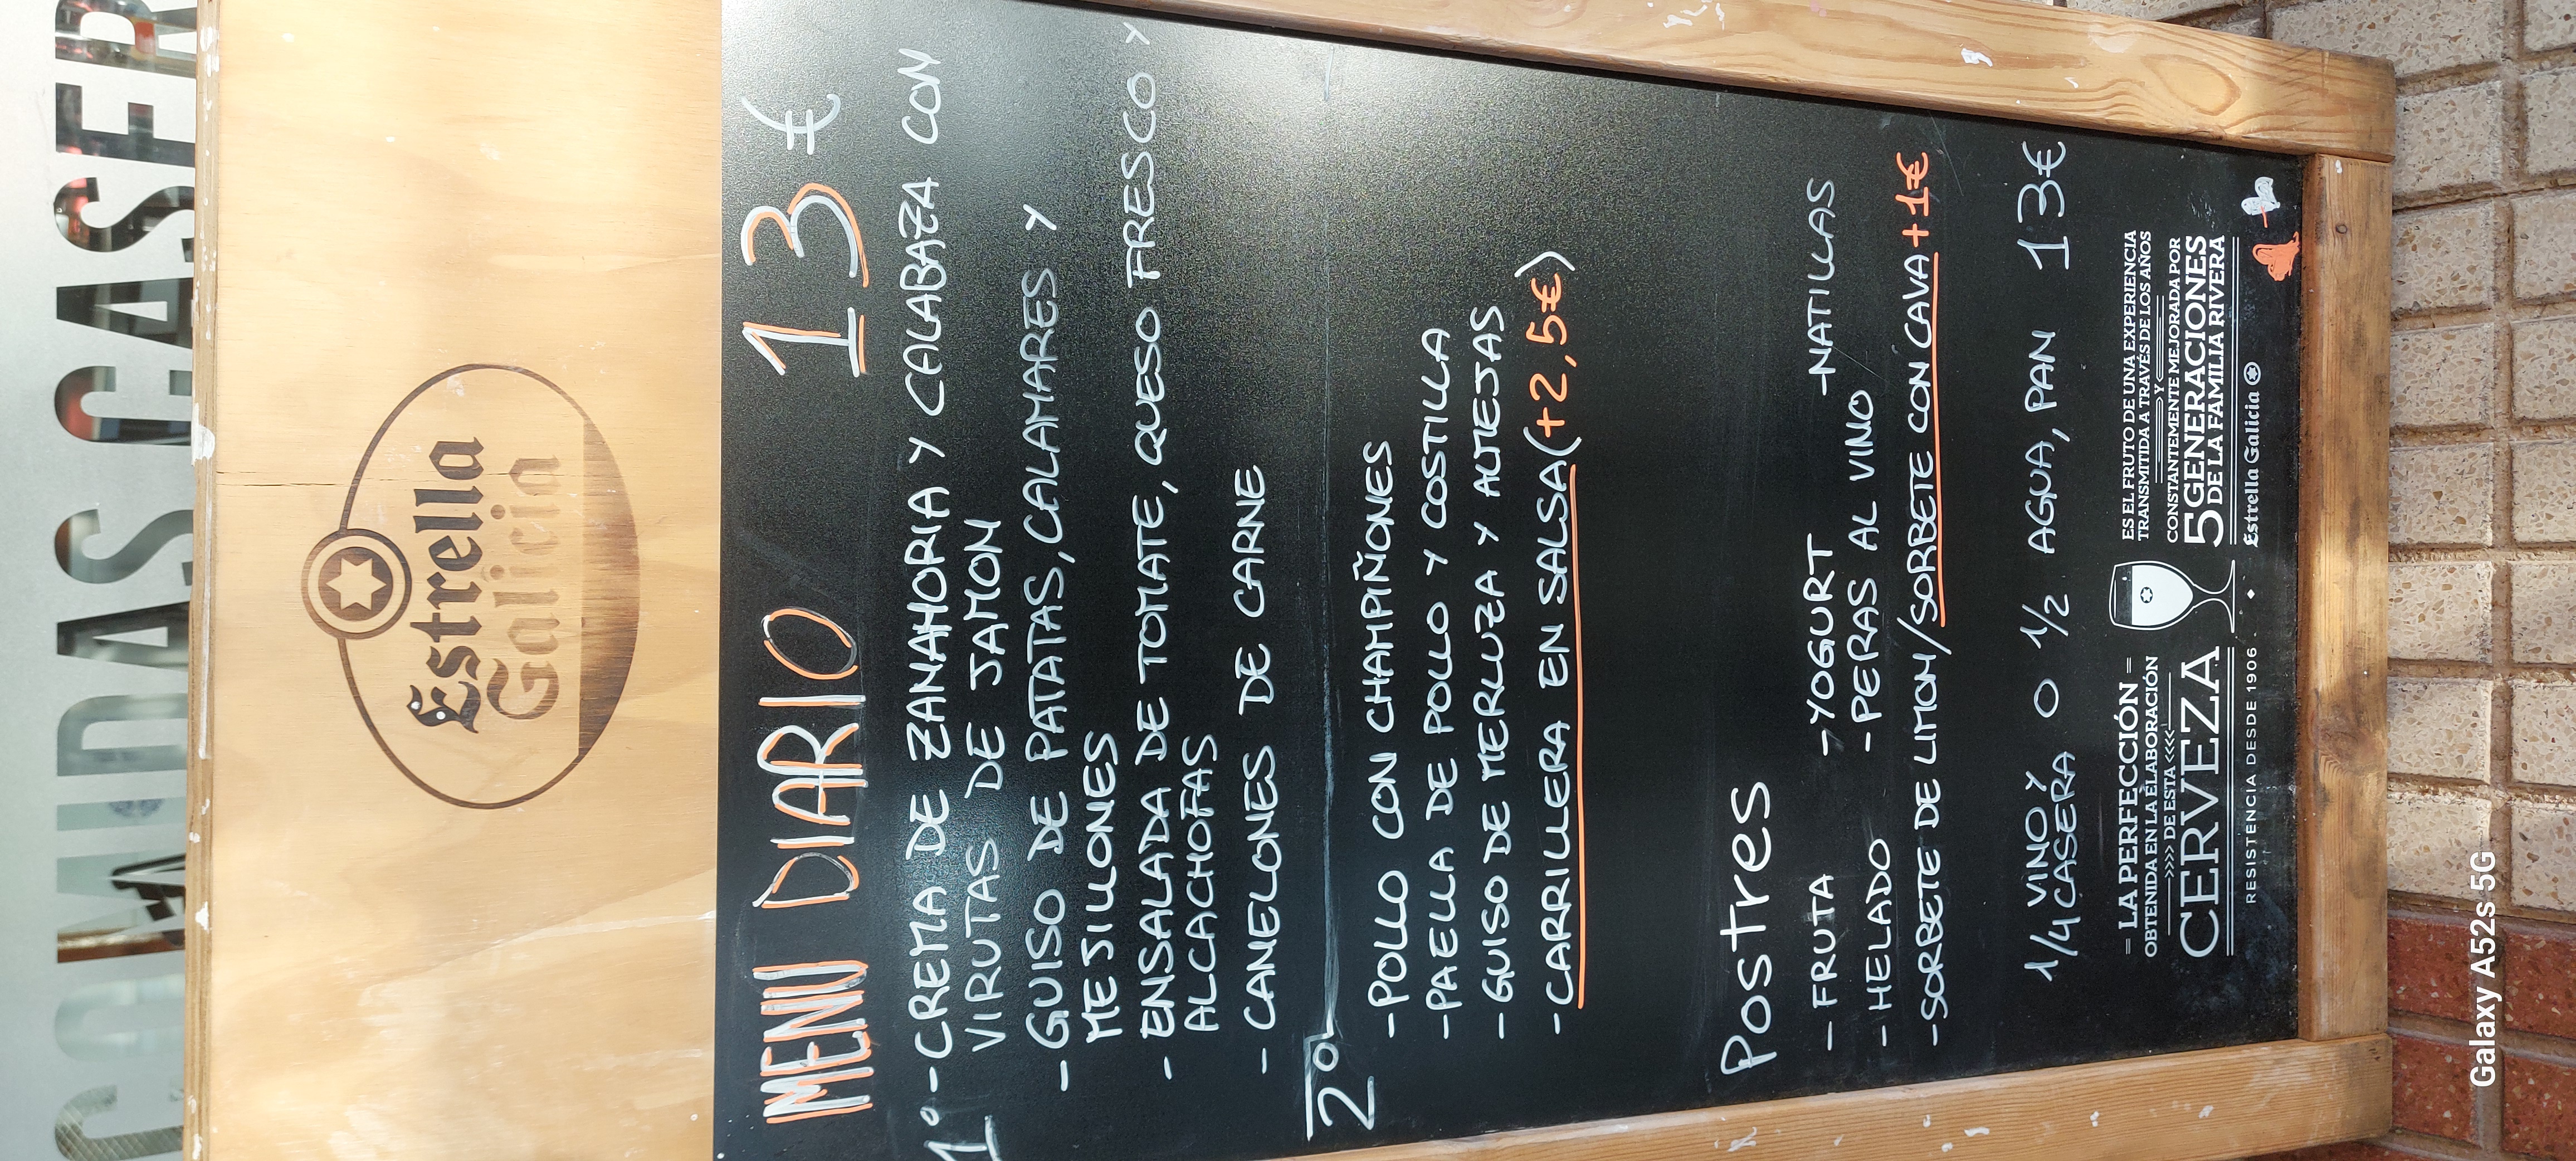 COMIDAS CASER
Estrella
Galicia
MENU DIARIO 13€
1º -CREMA DE ZANAHORIA Y CALABAZA CON
VIRUTAS DE JAMON
-GUISO DE PATATAS, CALAMARES Y
MEJILLONES
- ENSALADA DE TOMATE, QUESO FRESCO Y
ALCACHOFAS
- CANELONES DE CARNE
2º
-POLLO CON CHAMPIÑONES
-PAELLA DE POLLO Y COSTILLA
-GUISO DE MERLUZA Y ALMEJAS
-CARRILLERA EN SALSA (+2,5€)
Postres
- FRUTA -YOGURT -NATILLAS
-HELADO -PERAS AL VINO
-SORBETE DE LIMON/SORBETE CON CAVA +1€
1/4 VINO Y CASERA O 1/2 AGUA, PAN 13€
LA PERFECCIÓN
OBTENIDA EN LA ELABORACIÓN
DE ESTA
CERVEZA
RESISTENCIA DESDE 1906
ES EL FRUTO DE UNA EXPERIENCIA
TRANSMITIDA A TRAVÉS DE LOS AÑOS
Y
CONSTANTEMENTE MEJORADA POR
5 GENERACIONES
DE LA FAMILIA RIVERA
Estrella Galicia
Galaxy A52s 5G